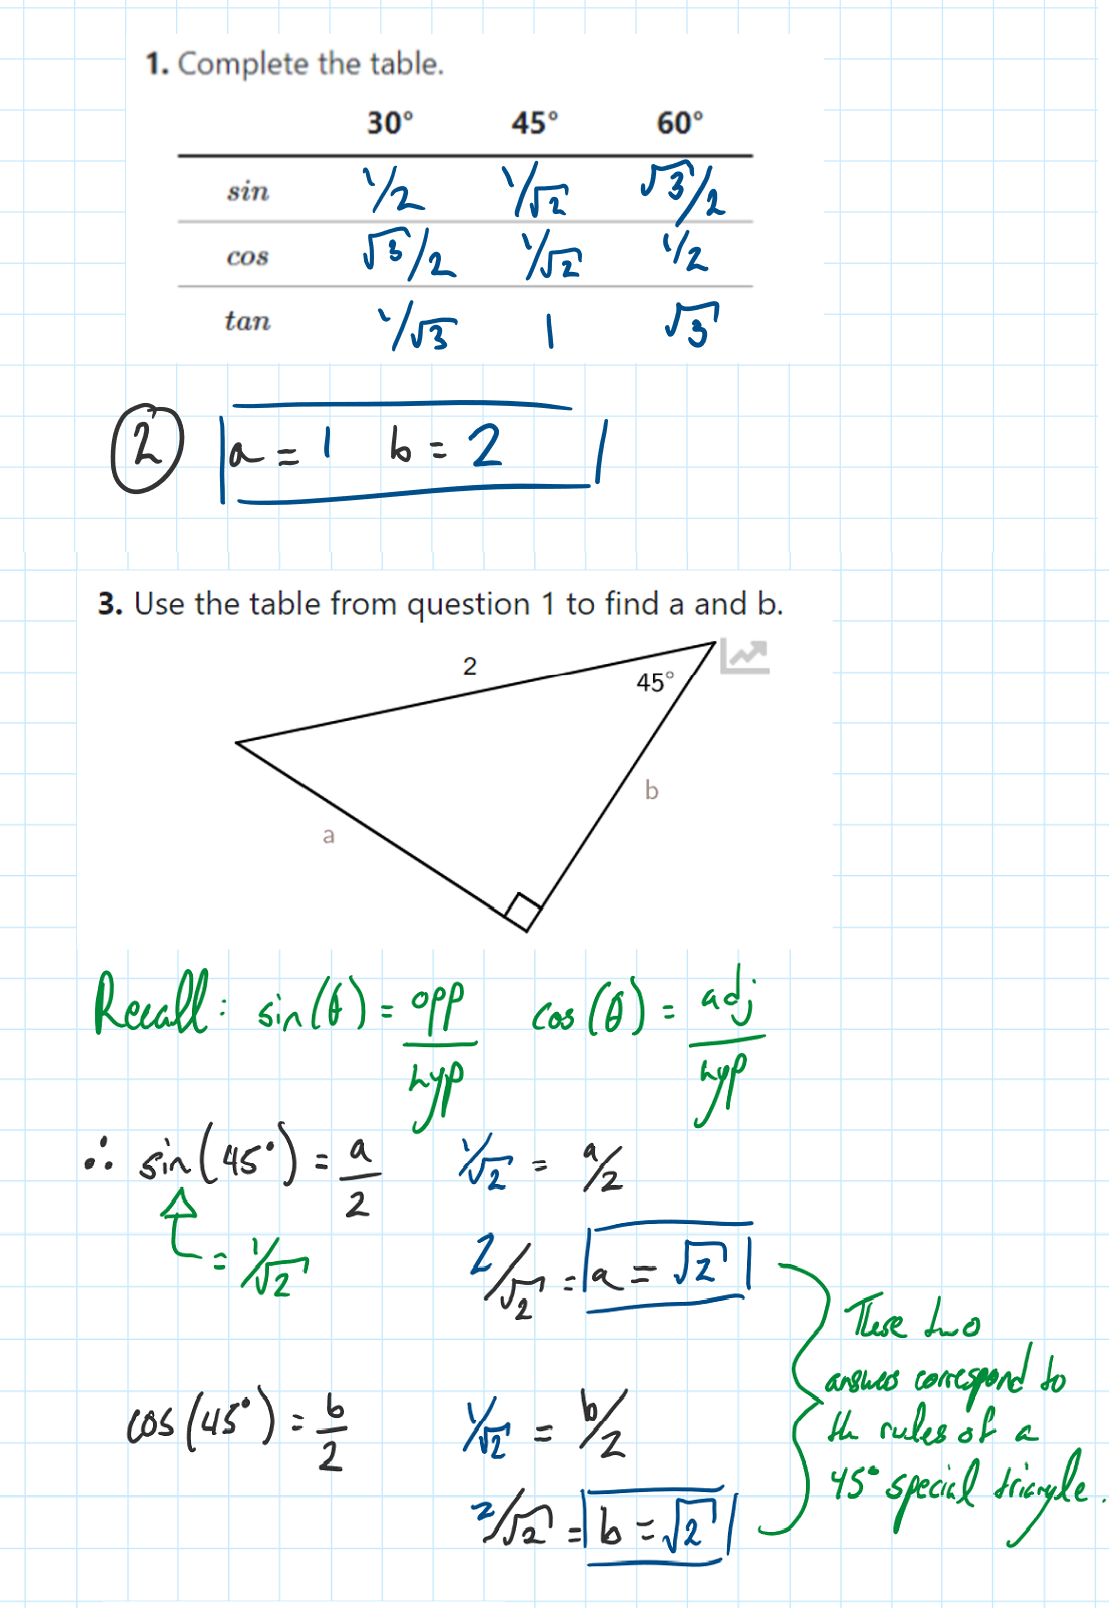 1. Complete the table.
30° 45° 60°
sin 1/2 1/√2 √3/2
cos √3/2 1/√2 1/2
tan 1/√3 1 √3
2 a = 1 b = 2
3. Use the table from question 1 to find a and b.
2
45°
b
a
Recall: sin(θ) = opp/hyp cos(θ) = adj/hyp
∴ sin(45°) = a/2 1/√2 = a/2
= 1/√2 2/√2 = a = √2
These two
answers correspond to
the rules of a
45° special triangle.
cos(45°) = b/2 1/√2 = b/2
2/√2 = b = √2